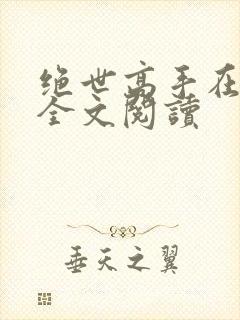 绝世高手在
全文閱讀
垂天之翼